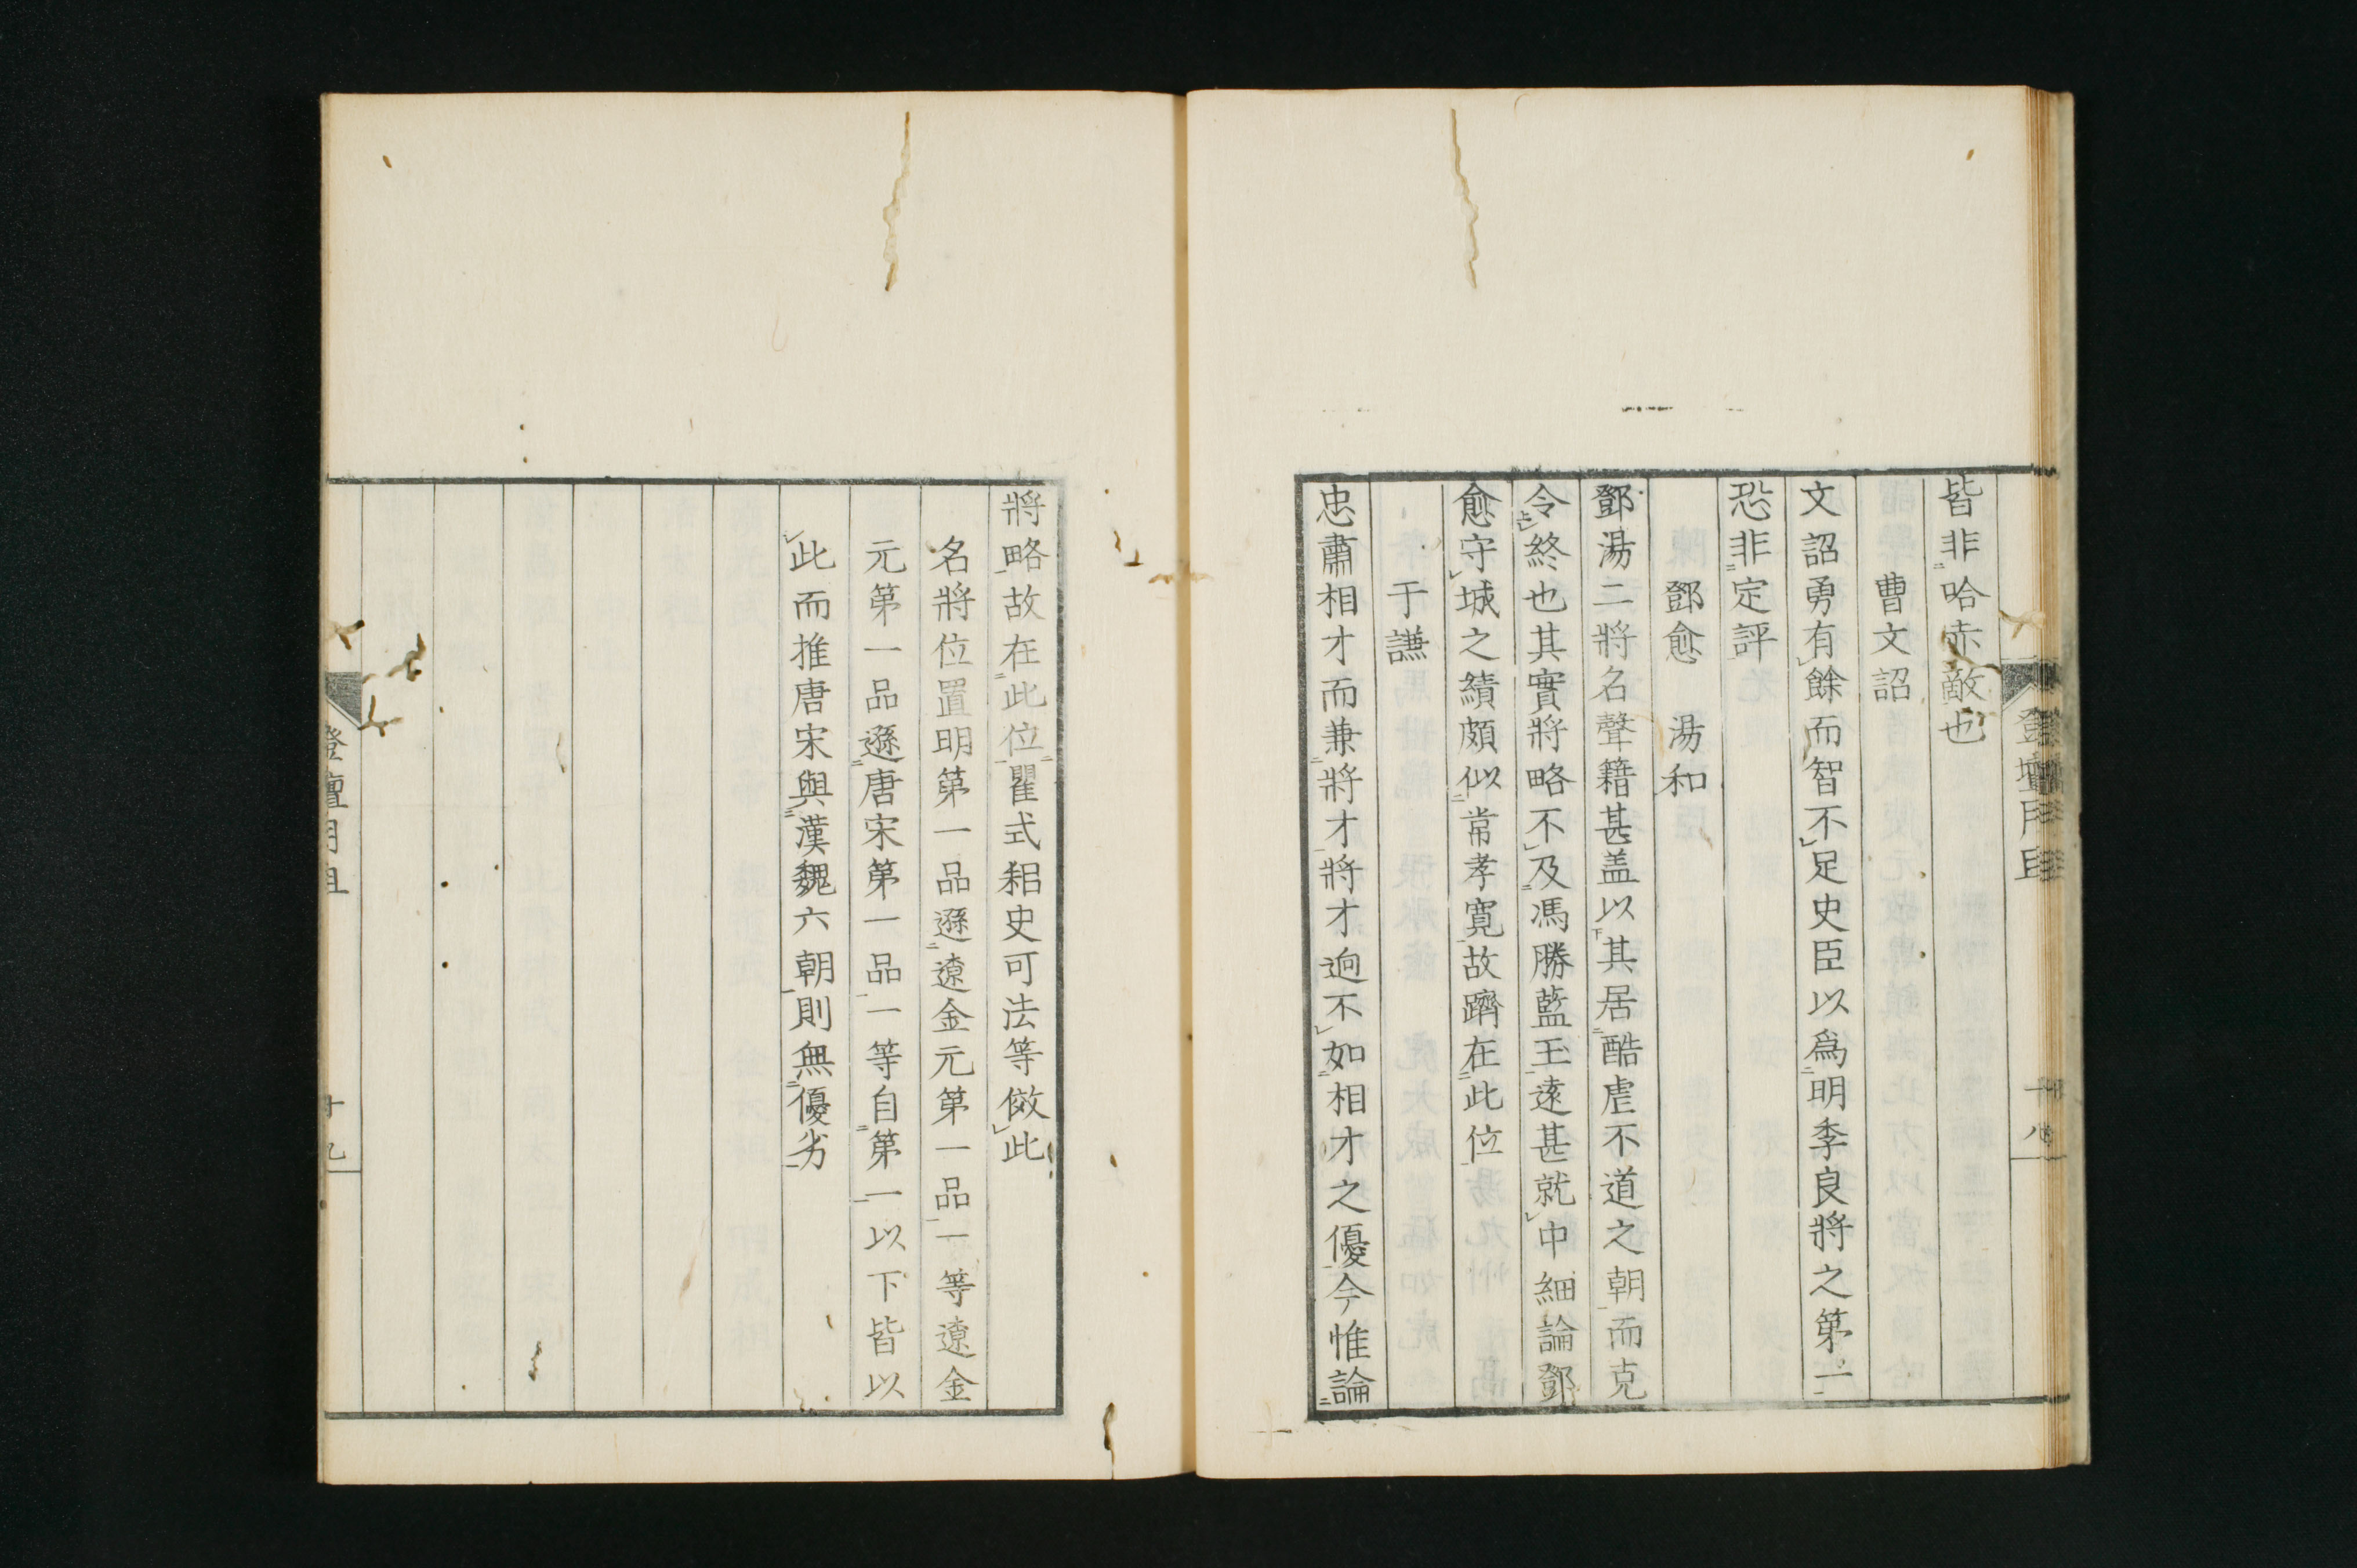 皆非哈赤敵也
曹文詔
文詔勇有餘而智不足史臣以爲明季良將之第一
恐非定評
鄧愈　湯和
鄧湯二將名聲籍甚盖以其居酷虐不道之朝而克
令終也其實將略不及馮勝藍玉遠甚就中細論鄧
愈守城之績頗似常孝寬故躋在此位
于謙
忠肅相才而兼將才將才逈不如相才之優今惟論
將略故在此位瞿式耜史可法等倣此
名將位置明第一品遜遼金元第一品一等遼金
元第一品遜唐宋第一品一等自第一以下皆以
此而推唐宋與漢魏六朝則無優劣
十九